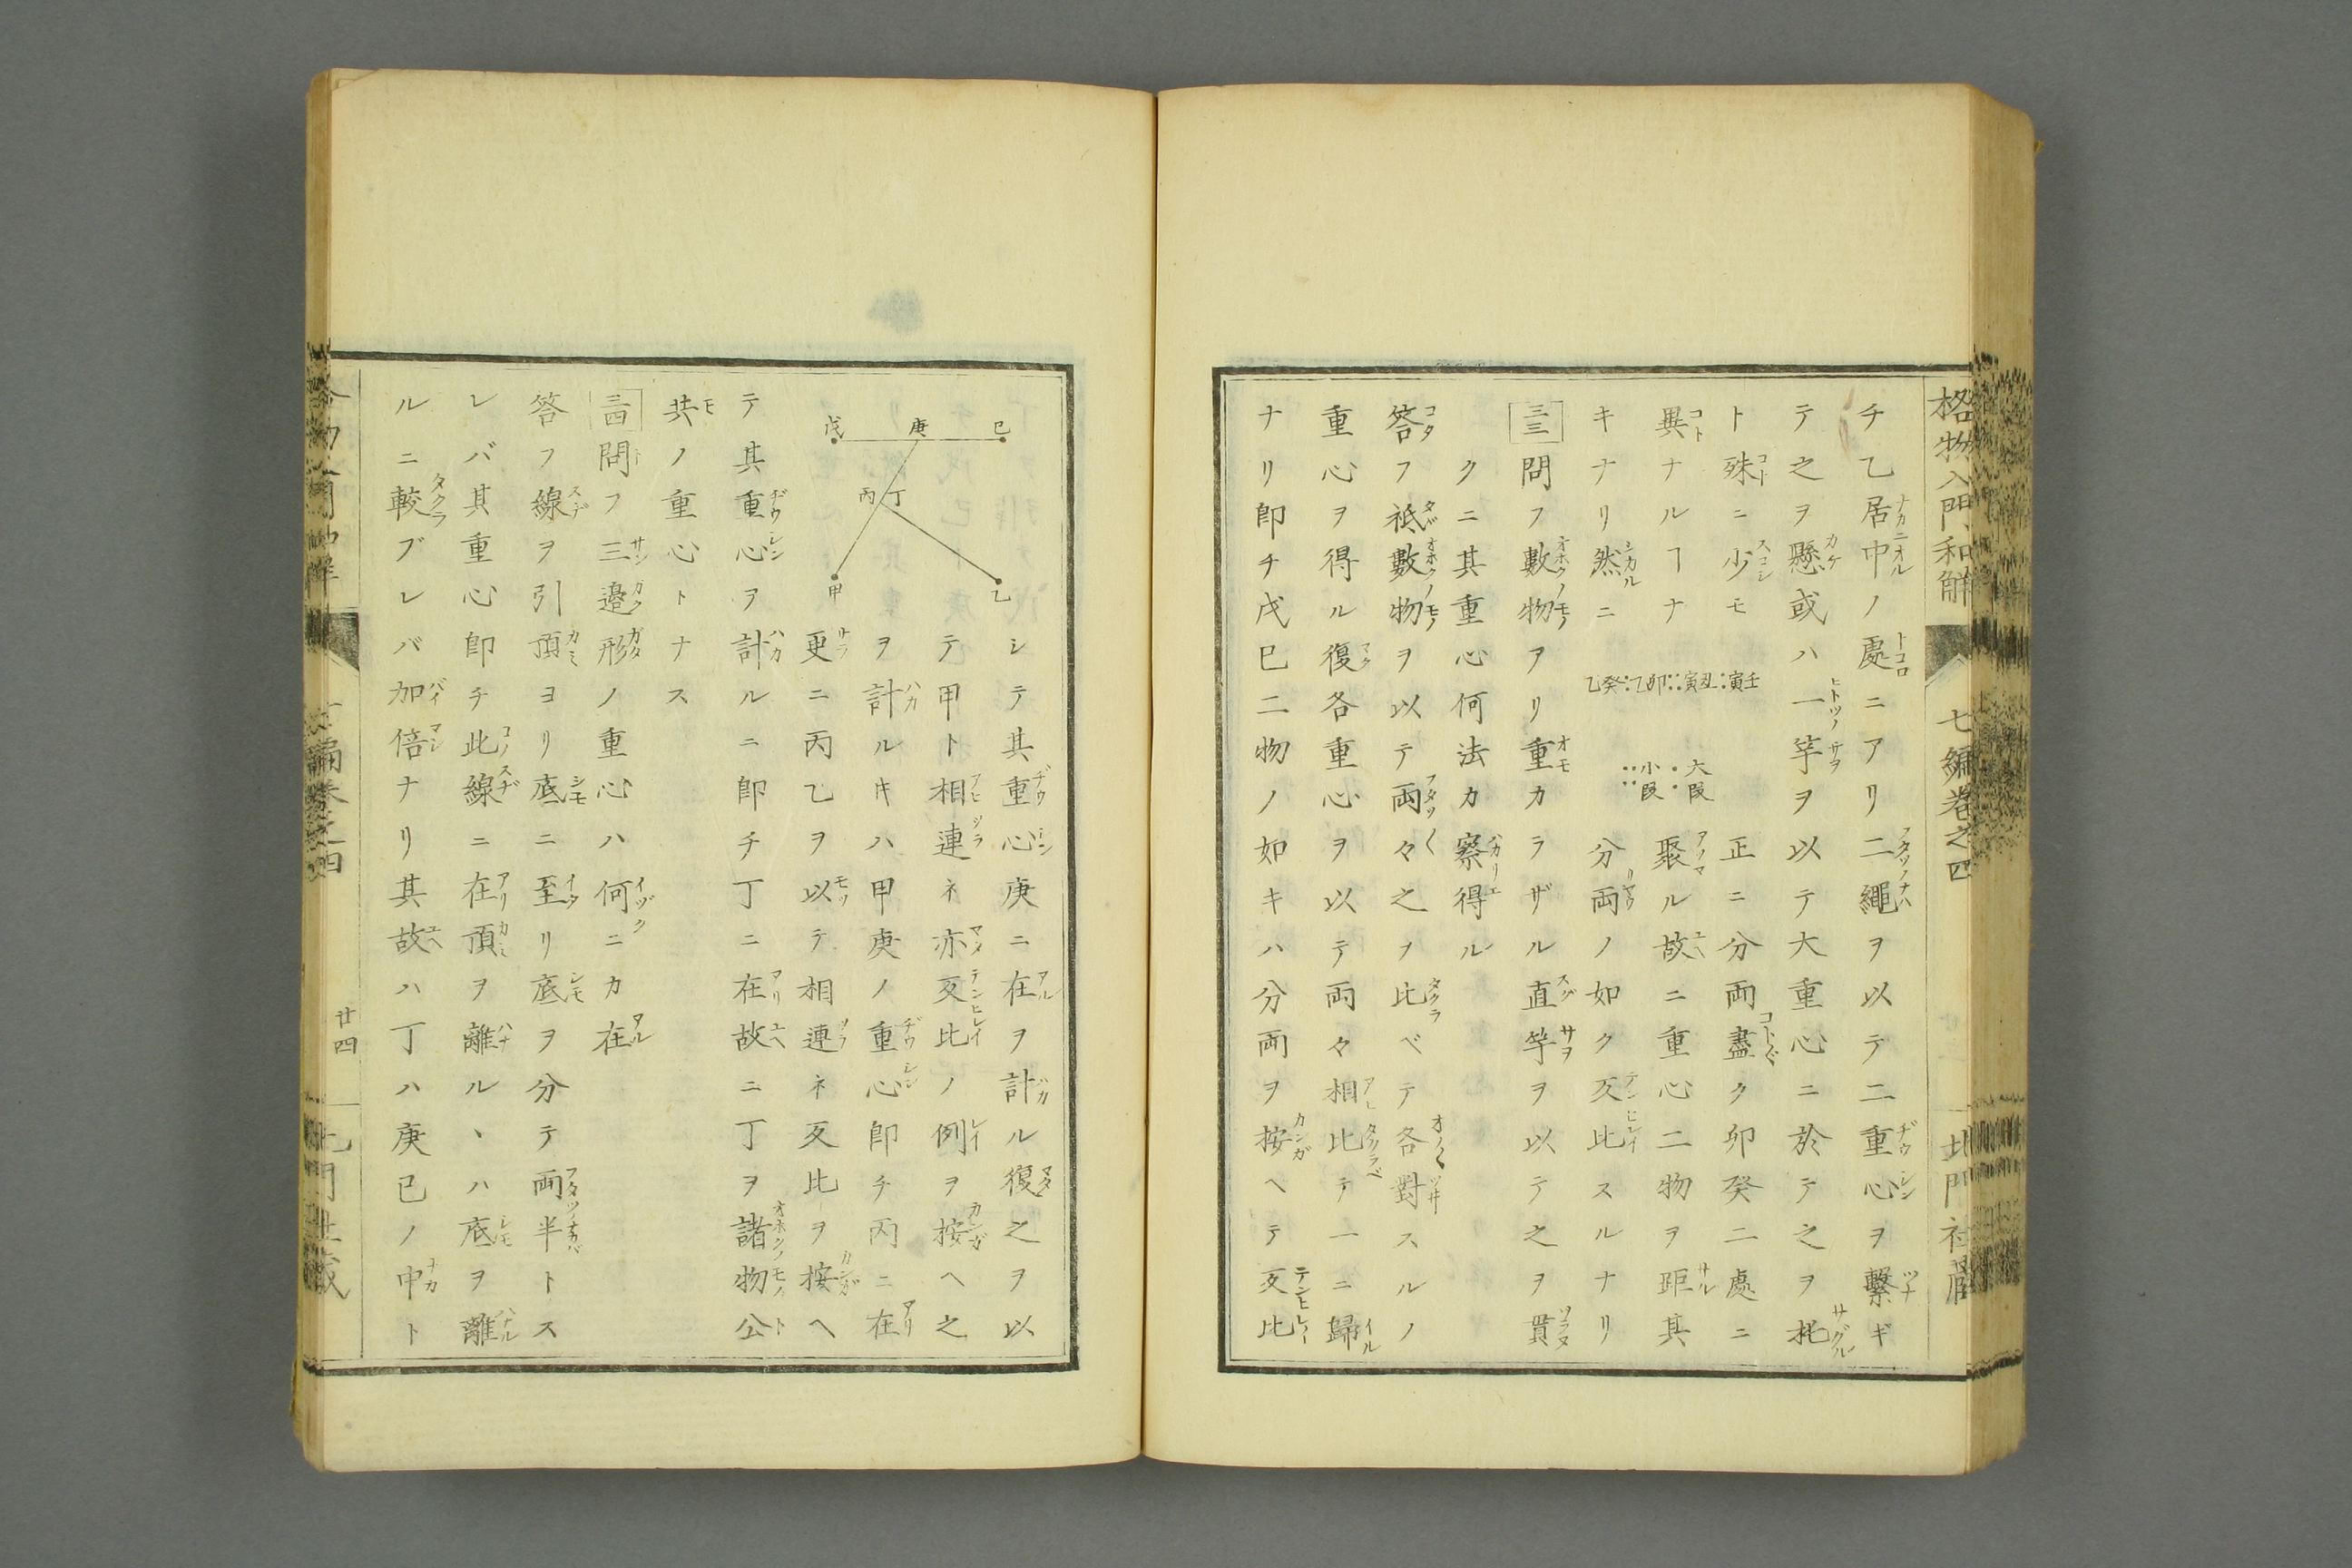 格物入門和解 七編卷之四 北門社藏
チ乙居中ノ處ニアリ二繩ヲ以テ二重心ヲ繫ギ
テ之ヲ懸或ハ一竿ヲ以テ大重心ニ於テ之ヲ托
ト殊ニ少モ 壬寅:丑寅::卯乙:癸乙 正ニ分両盡ク卯癸二處ニ
異ナルヿナ 大段:小段:: 聚ル故ニ重心二物ヲ距其
キナリ然ニ 分両ノ如ク反比スルナリ
三三 問フ數物アリ重カラザル直竿ヲ以テ之ヲ貫
クニ其重心何法カ察得ル
答フ祇數物ヲ以テ両々之ヲ比ベテ各對スルノ
重心ヲ得ル復各重心ヲ以テ両々相比テ一ニ歸
ナリ卽チ戊巳二物ノ如キハ分両ヲ按ヘテ反比
シテ其重心庚ニ在ヲ計ル復之ヲ以
テ甲ト相連ネ亦反比ノ例ヲ按ヘ之
ヲ計ルキハ甲庚ノ重心卽チ丙ニ在
更ニ丙乙ヲ以テ相連ネ反比ヲ按ヘ
巳 庚 戊
丁 丙
乙 甲
テ其重心ヲ計ルニ卽チ丁ニ在故ニ丁ヲ諸物公
共ノ重心トナス
三四 問フ三邉形ノ重心ハ何ニカ在
答フ線ヲ引頂ヨリ底ニ至リ底ヲ分テ両半トス
レバ其重心卽チ此線ニ在頂ヲ離ルヽハ底ヲ離
ルニ較ブレバ加倍ナリ其故ハ丁ハ庚己ノ中ト
廿四